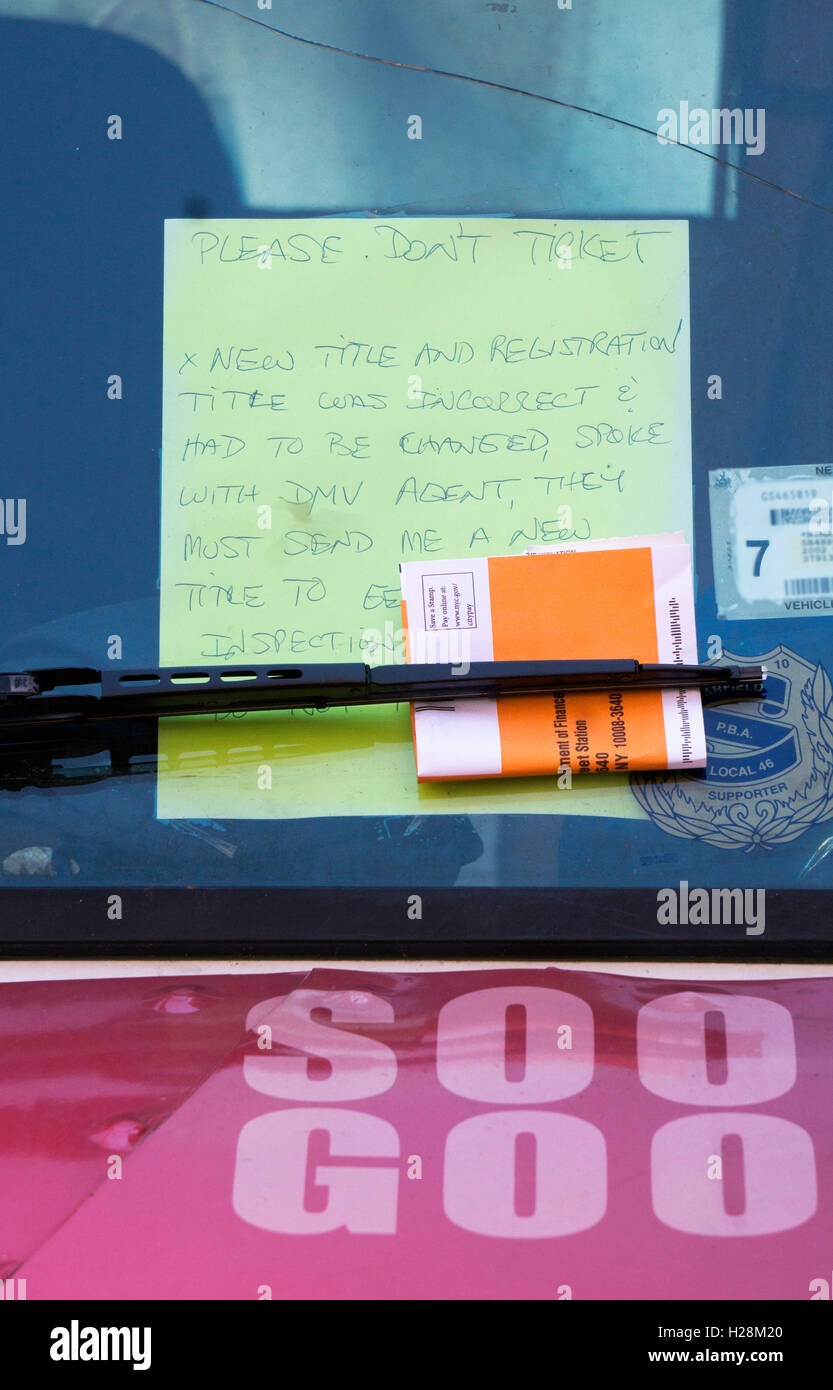 PLEASE DON'T TICKET
x NEW TITLE AND REGISTRATION
TITLE WAS INCORRECT &
HAD TO BE CHANGED, SPOKE
WITH DMV AGENT, THEY
MUST SEND ME A NEW
TITLE TO
INSPECTION
Save a Stamp.
Pay online at:
www.nyc.gov/
citypay
ment of Finance
eet Station
640
NY 10008-3640
GS465819
7
VEHICLE
10
P.B.A.
LOCAL 46
SUPPORTER
SOO
GOO
alamy
Image ID: H28M20
www.alamy.com